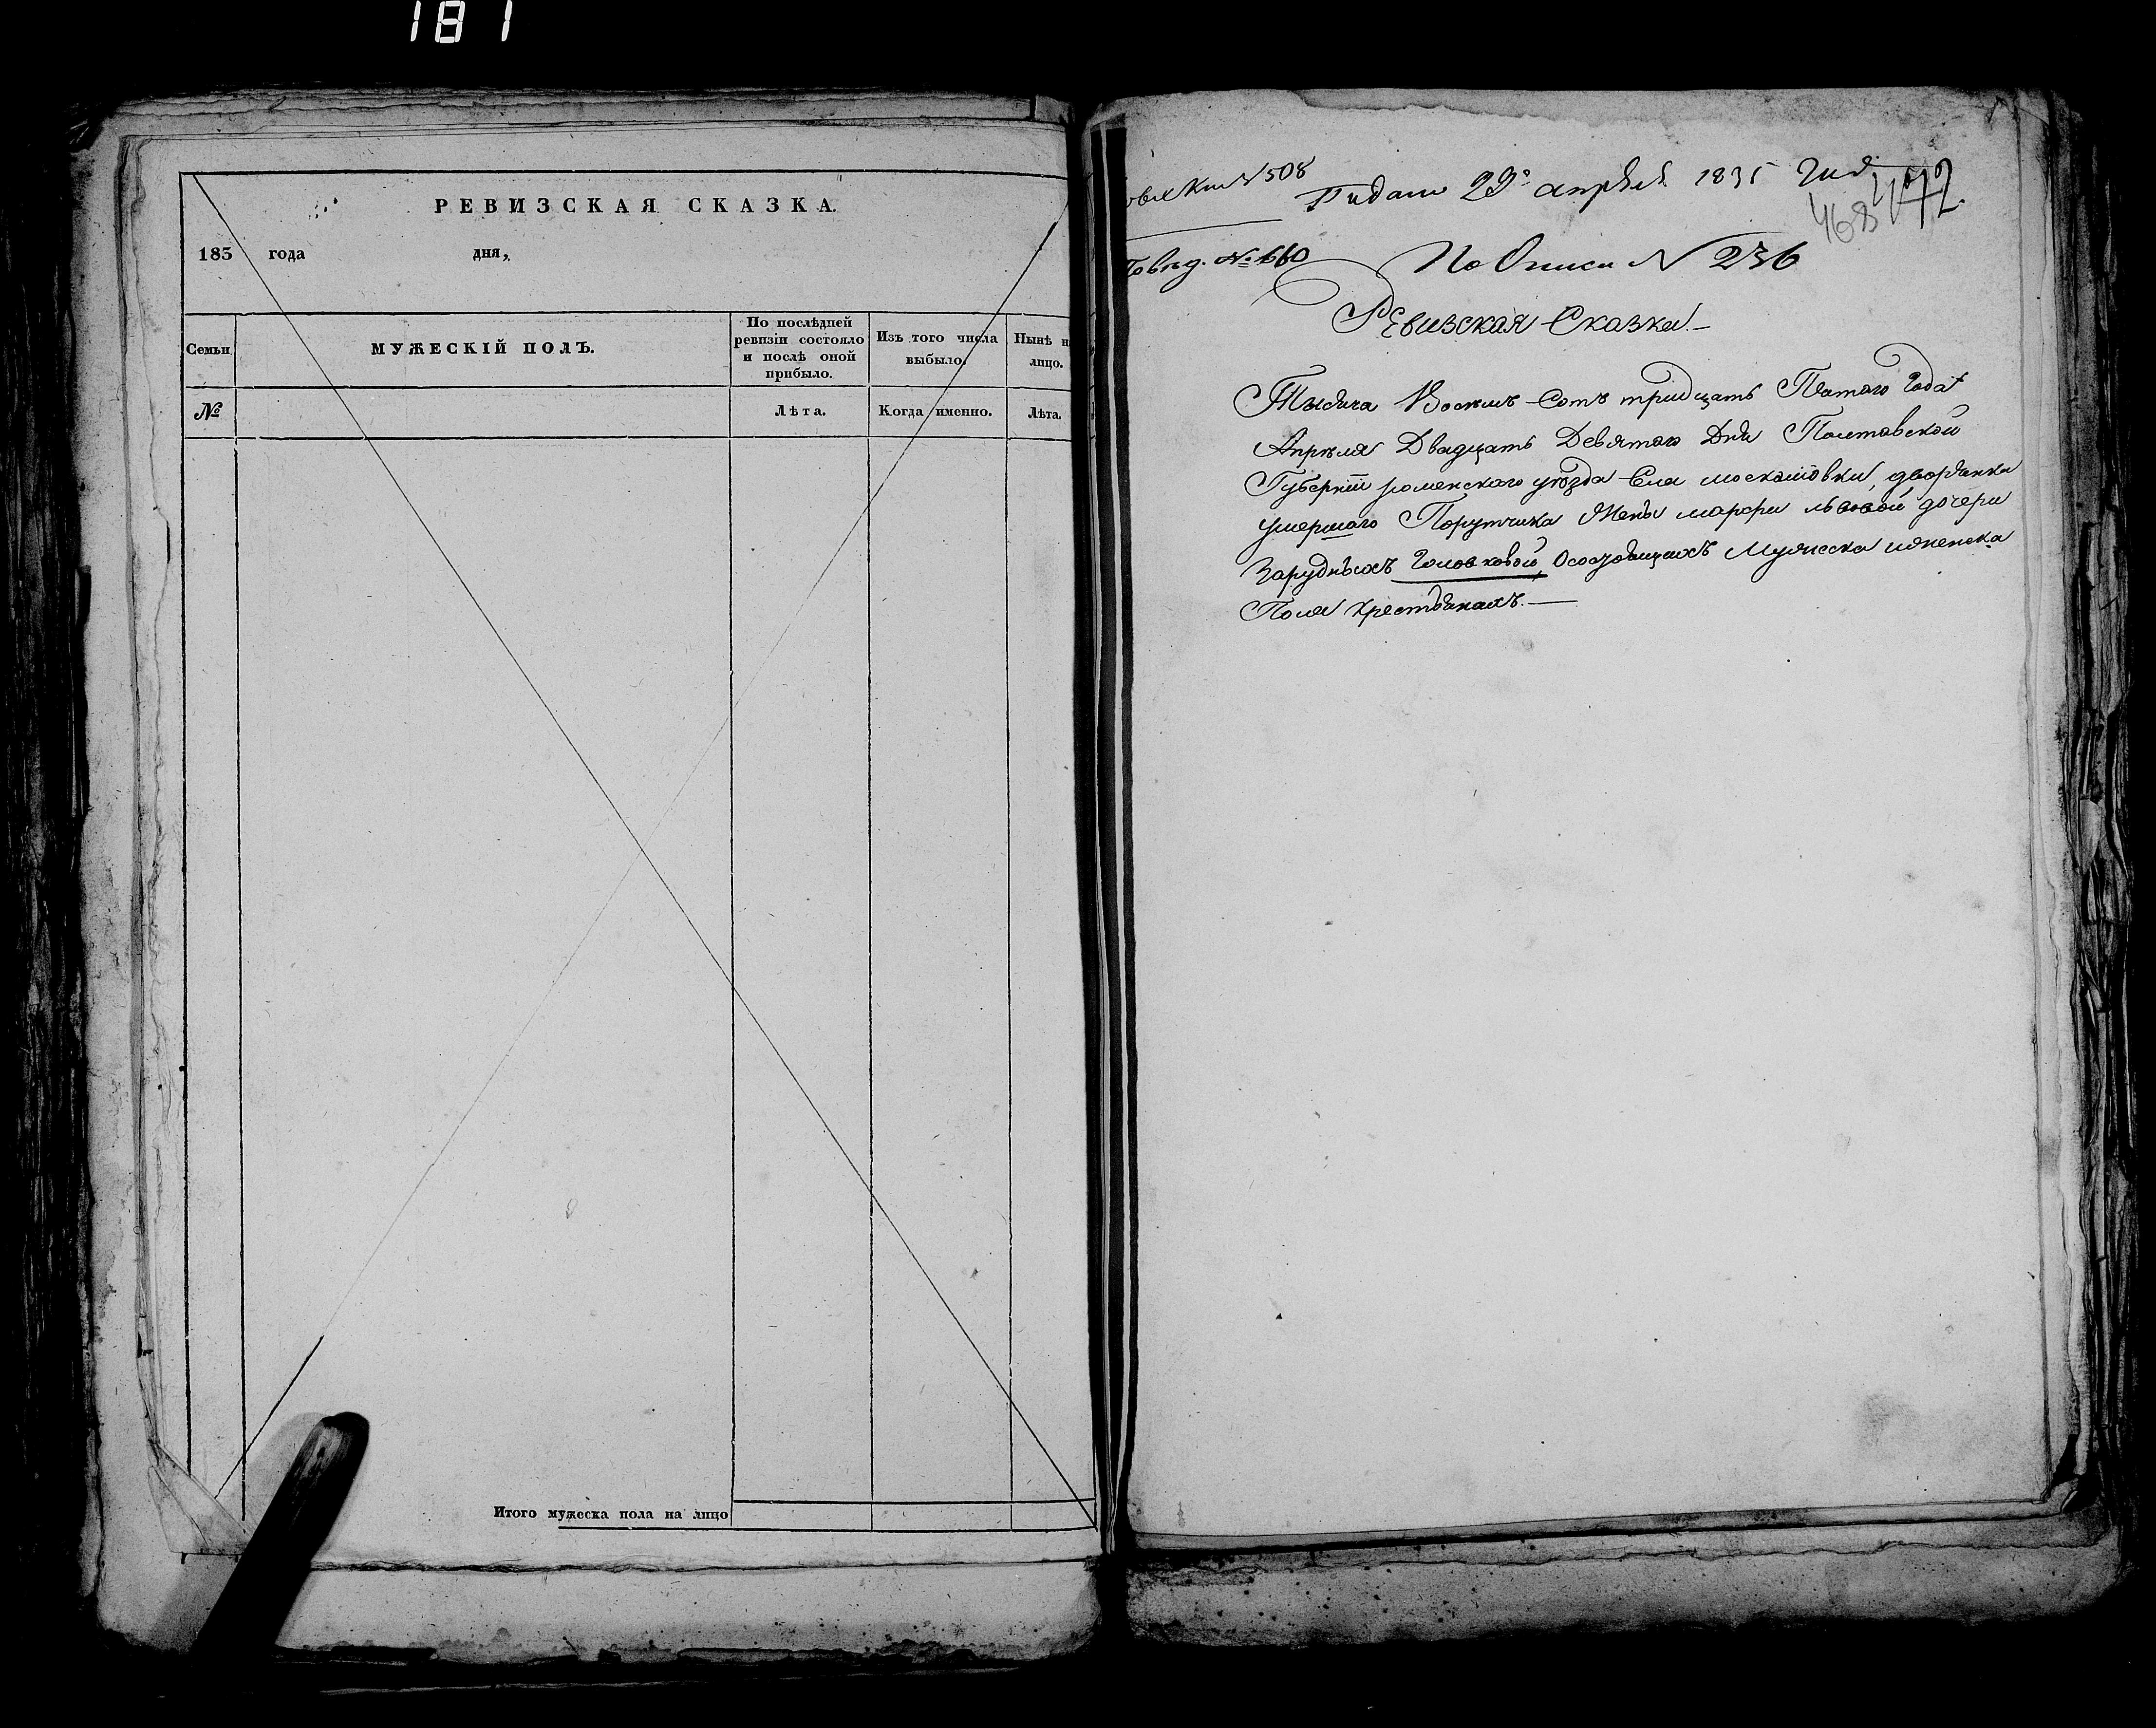 181
РЕВИЗСКАЯ СКАЗКА.
183 года дня,
Семьи
МУЖЕСКІЙ ПОЛЪ.
По послѣдней
ревизіи состояло
и послѣ оной
прибыло.
Изъ того числа
выбыло.
Нынѣ н
лицо.
№
Лѣта.
Когда именно.
Лѣта.
Итого мужеска пола на лицо
№ 508
29 апрѣля 1835
468
472
№ 660
По Описи № 236
Ревизская Сказка.—
Тысяча Восемь Сотъ тридцать Пятаго Года
Апреля Двадцать Девятаго Дня Полтавской
Губерніи роменскаго уѣзда Села москаліовки, дворянки
умершаго Порутчика Жены марфи львовой дочери
Зарудныхъ Головковой, Осостоящихъ Мужеска иженска
Пола крестьянахъ.—